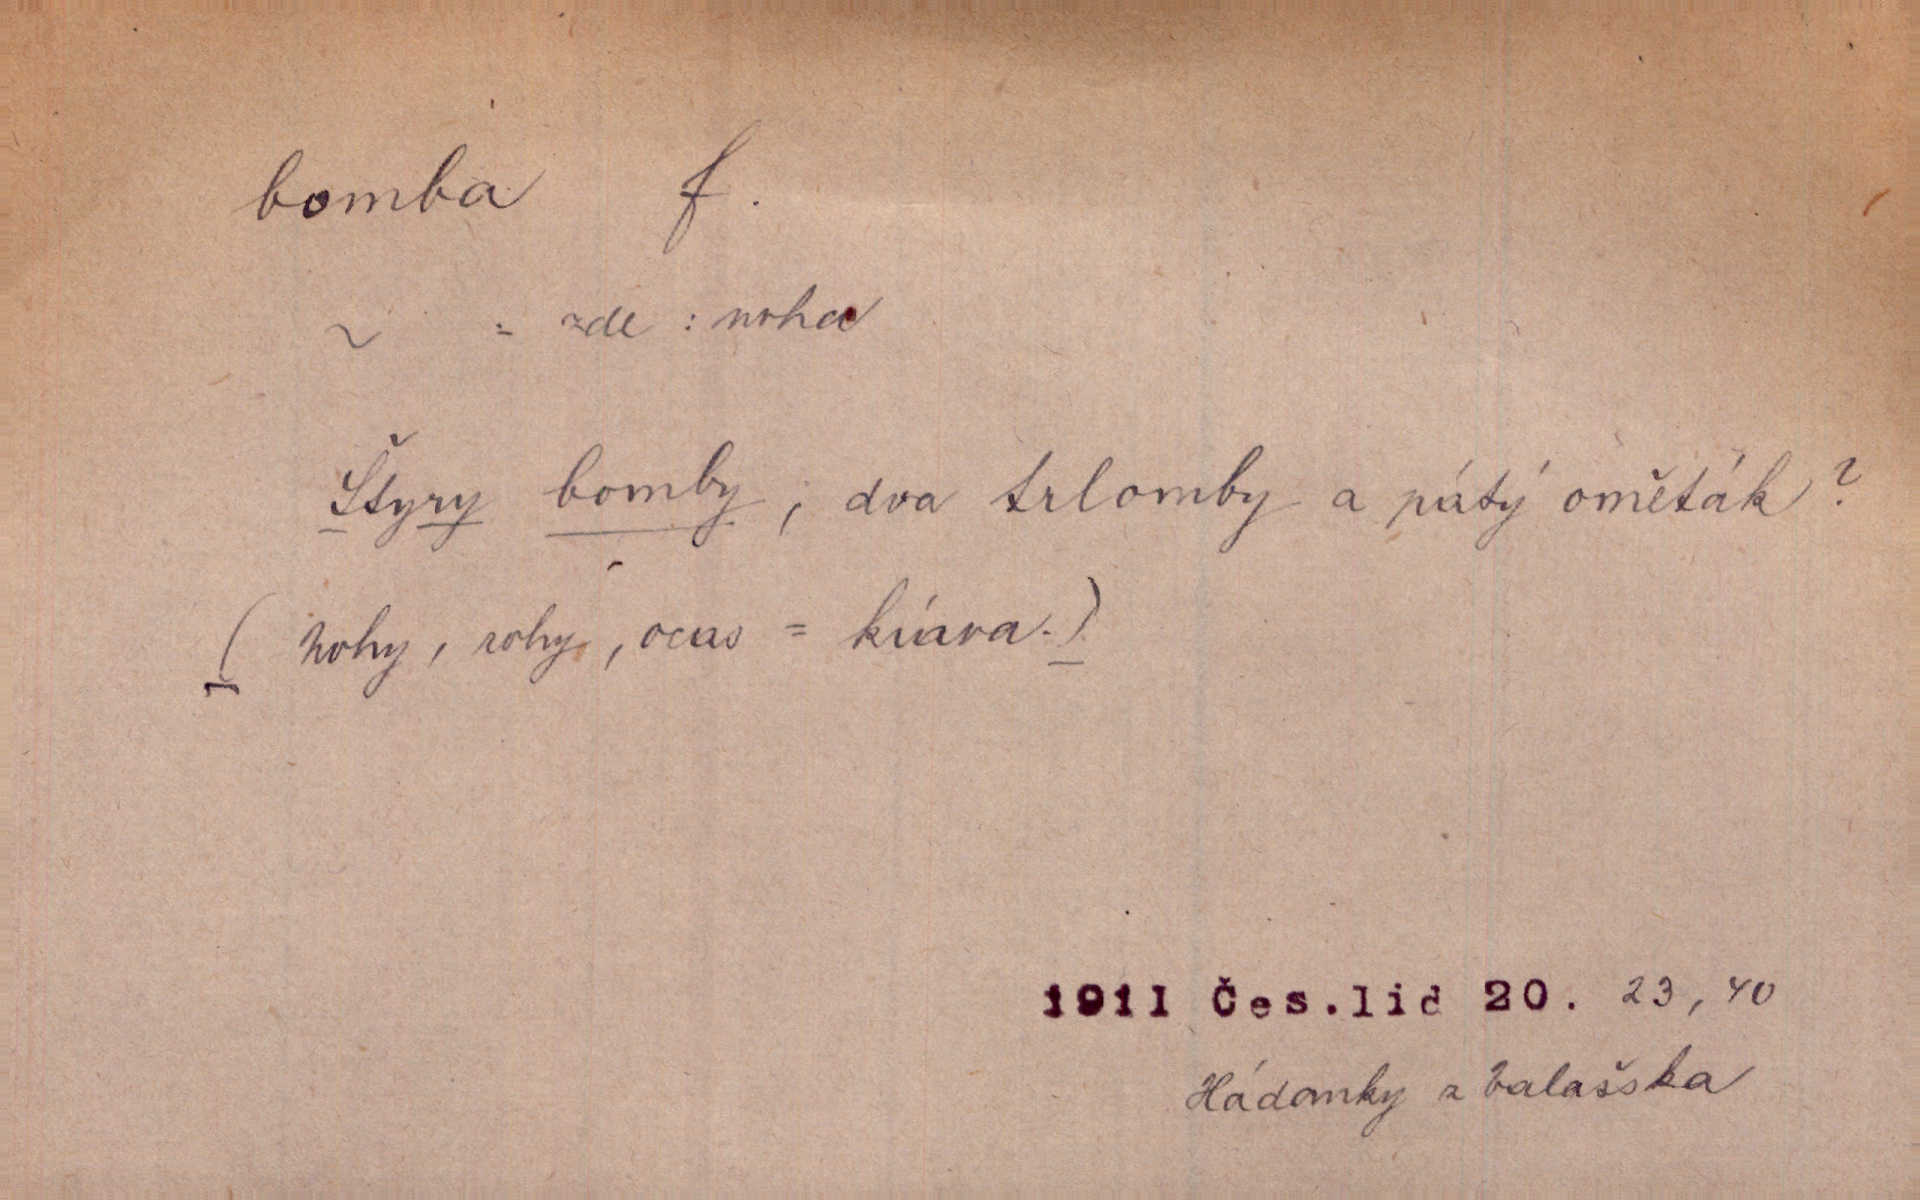 bomba f.
~ = zde : noha
Štyry bomby, dva trlomby a pátý ometák?
( nohy, rohy, ocas = kráva.)
1911 Čes.lid 20. 23, 40
Hádanky z Valašska